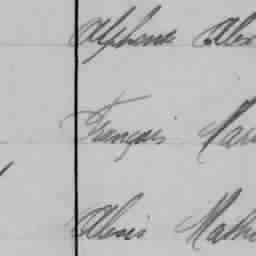 Alphonse Alex
François Mari
Alexis Mathi